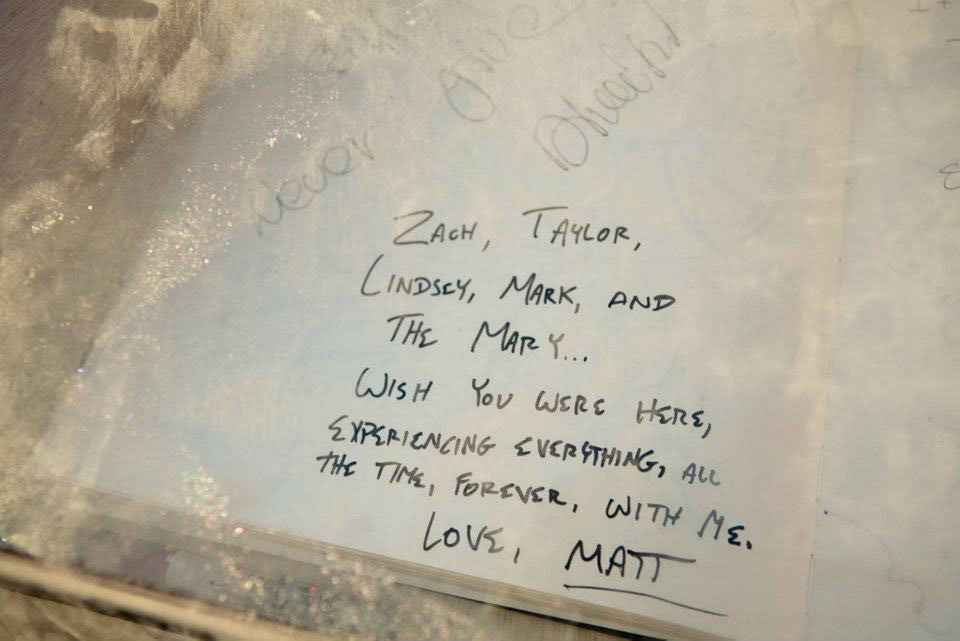 Never give
ZACH, TAYLOR,
LINDSEY, MARK, AND
THE MARY...
WISH YOU WERE HERE,
EXPERIENCING EVERYTHING, ALL
THE TIME, FOREVER, WITH ME.
LOVE, MATT